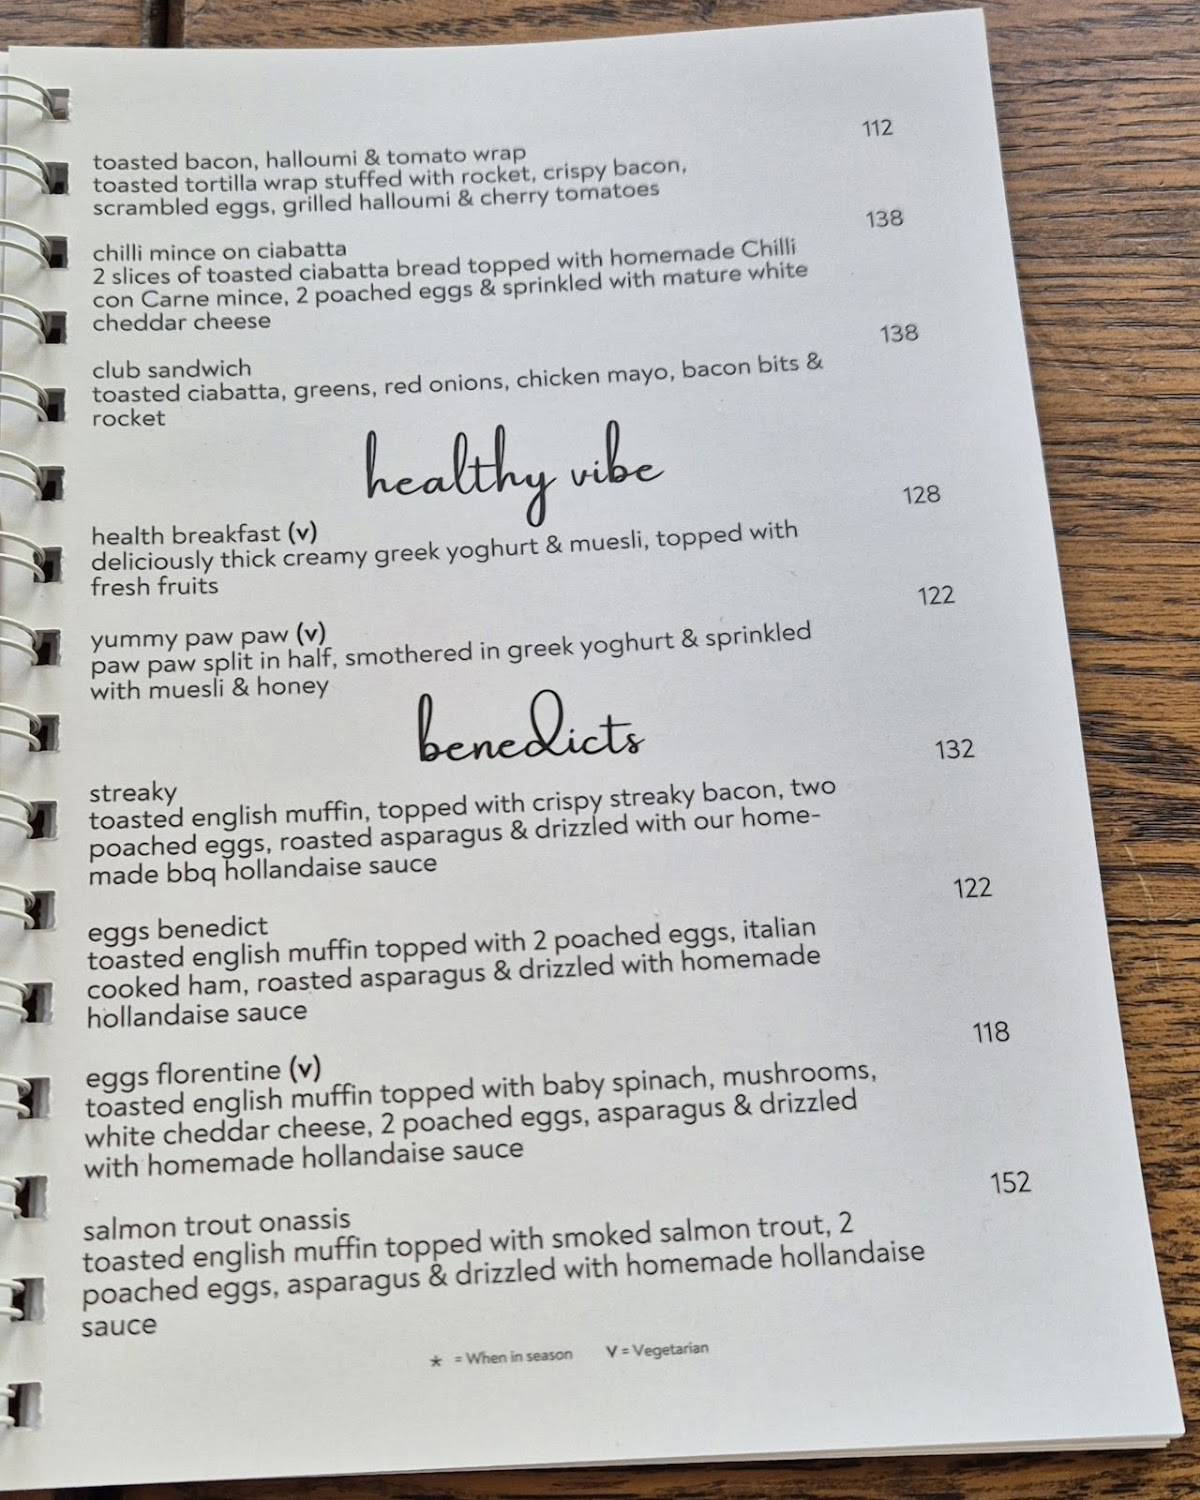 112
toasted bacon, halloumi & tomato wrap
toasted tortilla wrap stuffed with rocket, crispy bacon,
scrambled eggs, grilled halloumi & cherry tomatoes
138
chilli mince on ciabatta
2 slices of toasted ciabatta bread topped with homemade Chilli
con Carne mince, 2 poached eggs & sprinkled with mature white
cheddar cheese
138
club sandwich
toasted ciabatta, greens, red onions, chicken mayo, bacon bits &
rocket
healthy vibe
128
health breakfast (v)
deliciously thick creamy greek yoghurt & muesli, topped with
fresh fruits
122
yummy paw paw (v)
paw paw split in half, smothered in greek yoghurt & sprinkled
with muesli & honey
benedicts
132
streaky
toasted english muffin, topped with crispy streaky bacon, two
poached eggs, roasted asparagus & drizzled with our home-
made bbq hollandaise sauce
122
eggs benedict
toasted english muffin topped with 2 poached eggs, italian
cooked ham, roasted asparagus & drizzled with homemade
hollandaise sauce
118
eggs florentine (v)
toasted english muffin topped with baby spinach, mushrooms,
white cheddar cheese, 2 poached eggs, asparagus & drizzled
with homemade hollandaise sauce
152
salmon trout onassis
toasted english muffin topped with smoked salmon trout, 2
poached eggs, asparagus & drizzled with homemade hollandaise
sauce
* = When in season V = Vegetarian